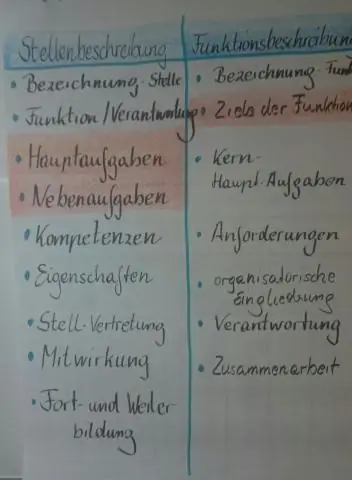 Stellenbeschreibung
• Bezeichnung - Stelle
• Funktion / Verantwortung
• Hauptaufgaben
• Nebenaufgaben
• Kompetenzen
• Eigenschaften
• Stell-Vertretung
• Mitwirkung
• Fort- und Weiter-
bildung
Funktionsbeschreibun
• Bezeichnung - Funk
• Ziele der Funktion
• Kern-
Haupt-Aufgaben
• Anforderungen
• organisatorische
Eingliederung
• Verantwortung
• Zusammenarbeit